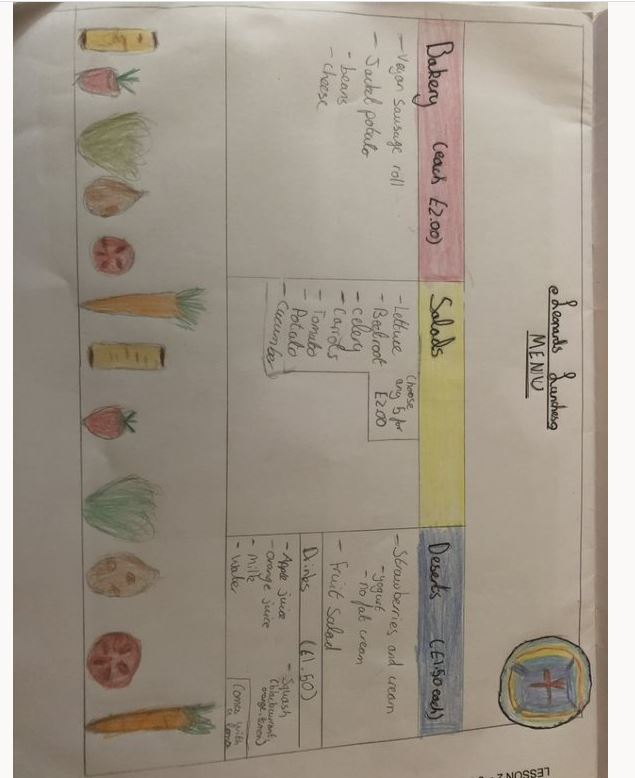 Leonards Lunches
MENU
Bakery (each £2.00)
- Vegan Sausage roll
- Jacket potato
- beans
- cheese
Salads
- Lettuce
- Beetroot
- Celery
- Carrots
- Tomato
- Potato
- Cucumber
Choose
any 5 for
£2.00
Deserts (£1.50 each)
- Strawberries and cream
- yogurt
- no fat cream
- Fruit Salad
Drinks (£1.50)
- Apple juice
- orange juice
- Milk
- Water
- Squash
(blackcurrant,
orange, lemon)
Comes with
LESSON 2